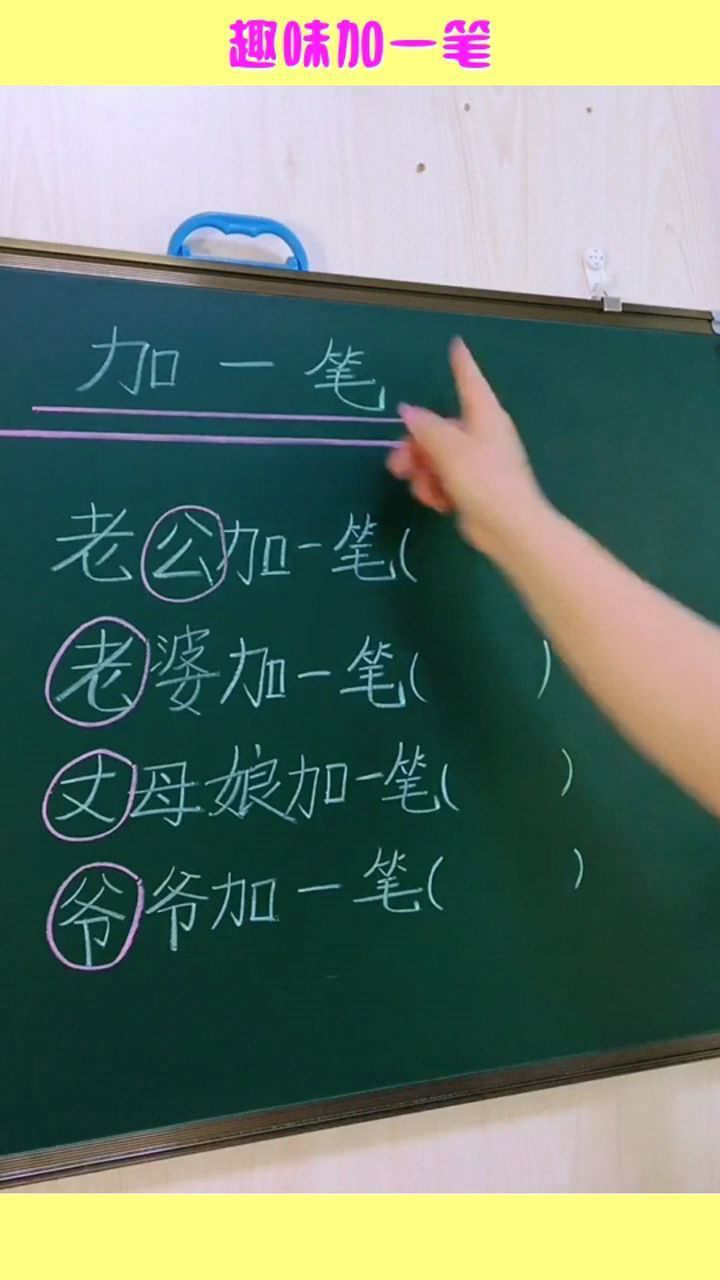 趣味加一笔
加一笔
老公加一笔(
老婆加一笔( )
丈母娘加一笔( )
爷爷加一笔( )